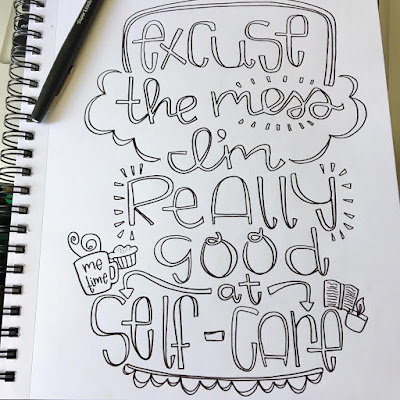 excuse
the mess
I'm
ReALLy
good
me
time
at
self-CARe